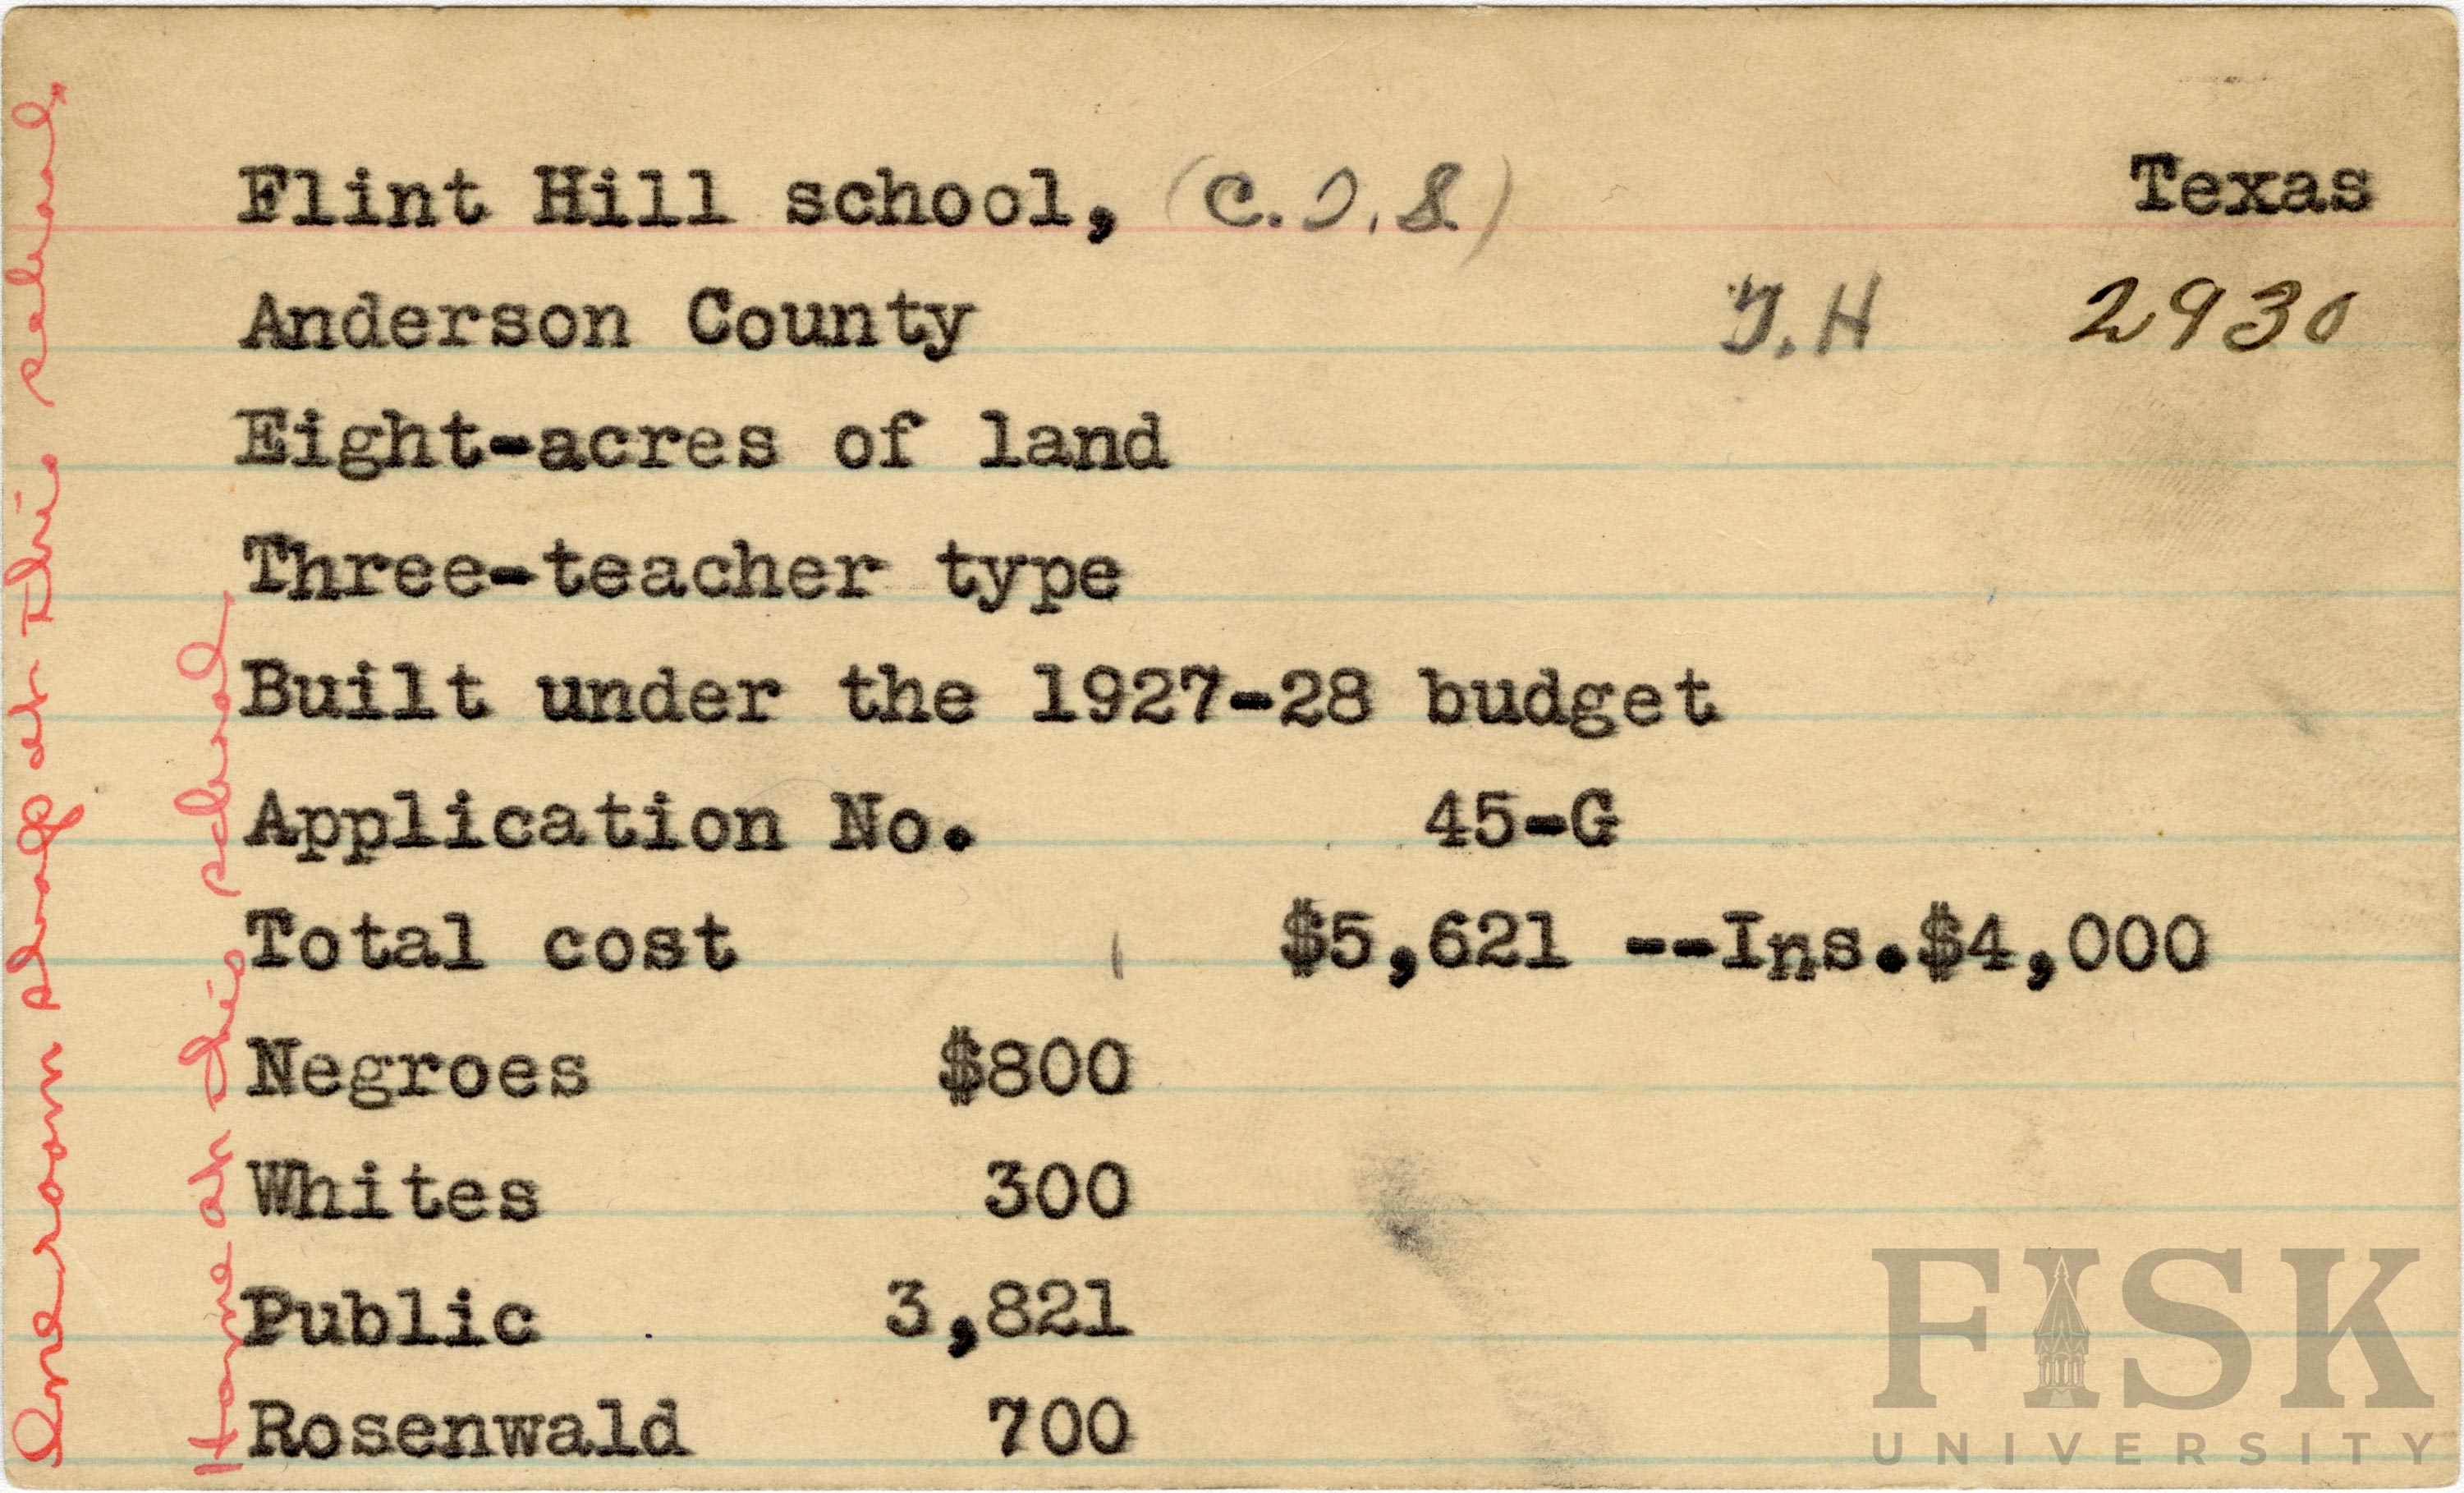 Flint Hill school, (C.T.S.) Texas
Anderson County T.H 2930
Eight-acres of land
Three-teacher type
Built under the 1927-28 budget
Application No. 45-G
Total cost $5,621 --Ins.$4,000
Negroes $800
Whites 300
Public 3,821
Rosenwald 700
One room shop at this school.
Home at this school
FISK
UNIVERSITY